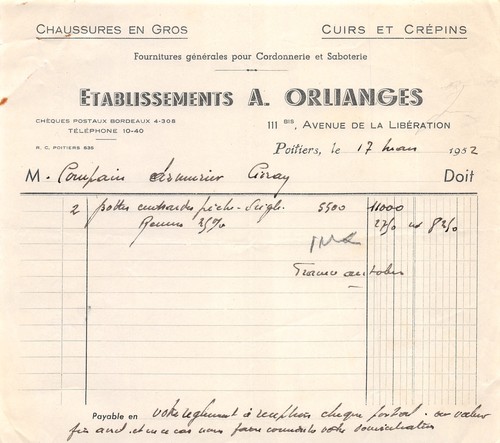 CHAUSSURES EN GROS
CUIRS ET CRÉPINS
Fournitures générales pour Cordonnerie et Saboterie
ETABLISSEMENTS A. ORLIANGES
CHÈQUES POSTAUX BORDEAUX 4-306
111 BIS, AVENUE DE LA LIBÉRATION
TÉLÉPHONE 10-40
R. C. POITIERS 635
Poitiers, le 17 mars 1952
M. Compain Armurier Civray Doit
2 bottes pêche 5500 11000
Remise 25% 2750 net 8250
Payable en votre règlement à réception chèque postal ou valeur
fin avril et en ce cas nous faire connaître votre domiciliation